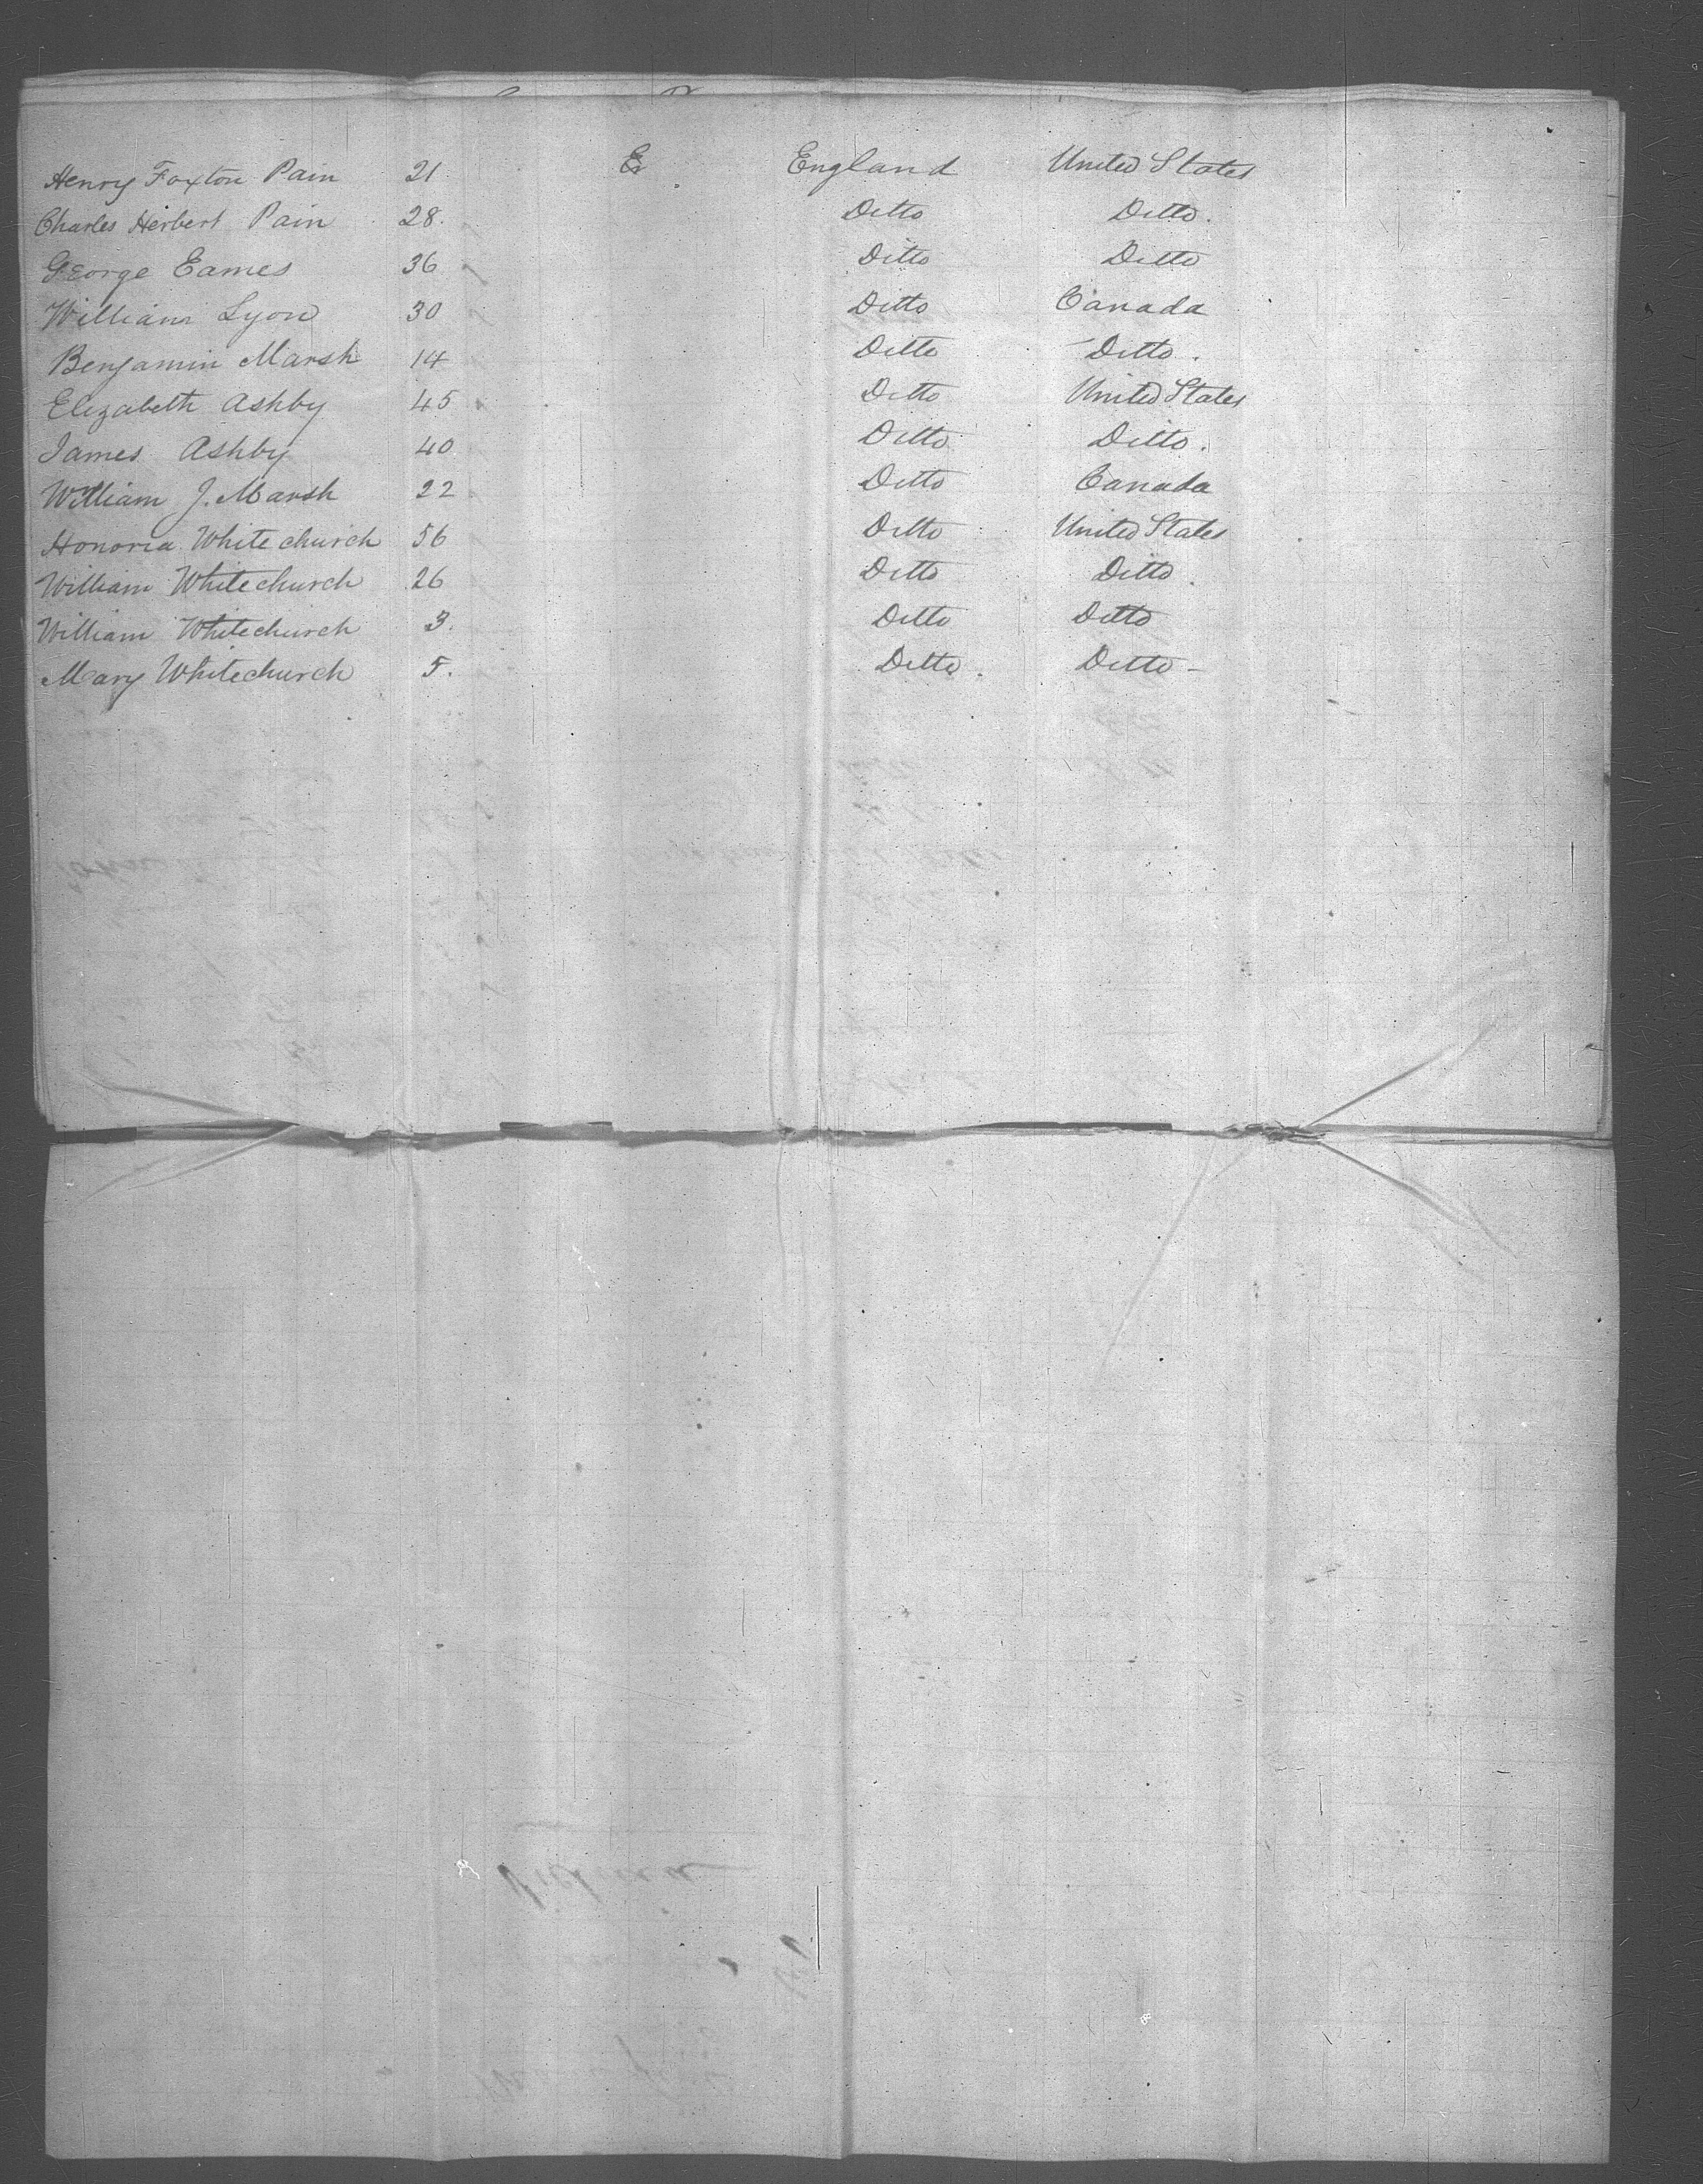 Henry Foxton Pain 21 England United States
Charles Herbert Pain 28. Ditto Ditto.
George Eames 36 Ditto Ditto
William Lyon 30 Ditto Canada
Benjamin Marsh 14 Ditto Ditto.
Elizabeth Ashby 45 Ditto United States
James Ashby 40 Ditto Ditto.
William J. Marsh 22 Ditto Canada
Honoria Whitechurch 56 Ditto United States
William Whitechurch 26 Ditto Ditto.
William Whitechurch 3. Ditto Ditto
Mary Whitechurch 5. Ditto. Ditto -